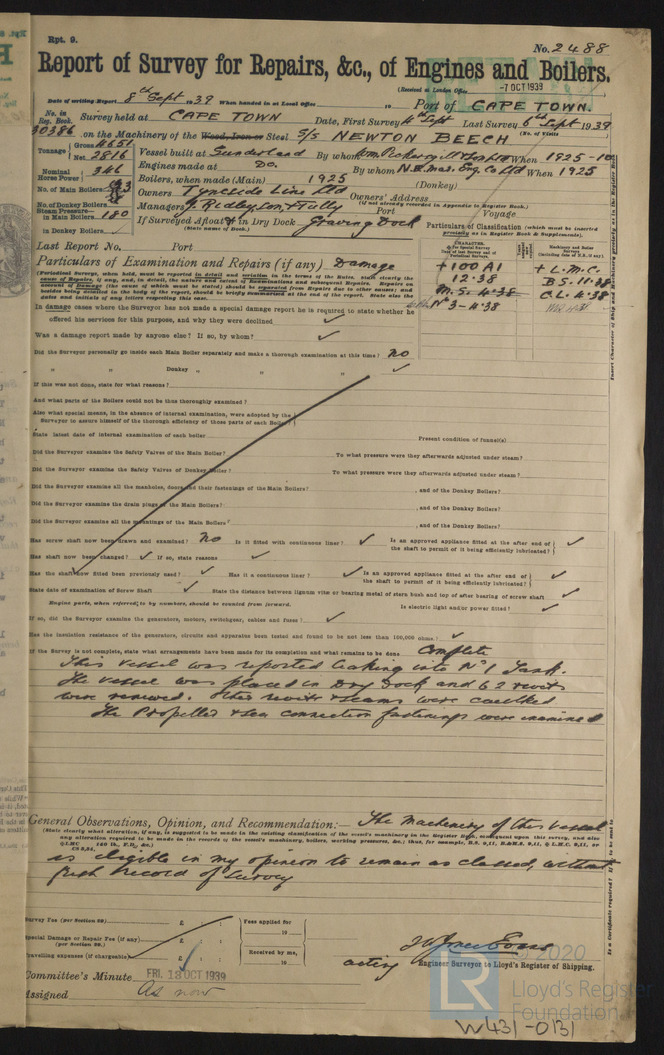 Rpt. 9.
No. 2488
Report of Survey for Repairs, &c., of Engines and Boilers.
(Received at London Office -7 OCT 1939
Date of writing Report 8th Sept 1939 When handed in at Local Office 19 Port of CAPE TOWN.
No. in Reg. Book. Survey held at CAPE TOWN Date, First Survey 4th Sept Last Survey 6th Sept 1939
(No. of Visits
30386 on the Machinery of the Wood, Iron or Steel S/S NEWTON BEECH
Tonnage Gross 4651 Vessel built at Sunderland By whom Wm Pickersgill & Sons Ltd When 1925-10
Net 2816 Engines made at Do. By whom N.E. Mar. Eng. Co Ltd When 1925
Nominal Horse Power 346 Boilers, when made (Main) 1925 (Donkey)
No. of Main Boilers 3 Owners Tyneside Line Ltd Owners' Address
(if not already recorded in Appendix to Register Book.)
No. of Donkey Boilers Managers J. Ridley, Son & Tully Port Voyage
Steam Pressure in Main Boilers 180 If Surveyed Afloat & in Dry Dock Graving Dock
(State name of Dock.)
in Donkey Boilers
Particulars of Classification (which must be inserted precisely as in Register Book & Supplements).
Last Report No. Port
Particulars of Examination and Repairs (if any) Damage
CHARACTER.
+100 A1 + L.M.C.
12.38 B S. 11.38
M.S. 4.38 C.L. 4.38
No 3 - 4.38
In damage cases where the Surveyor has not made a special damage report he is required to state whether he
offered his services for this purpose, and why they were declined
Was a damage report made by anyone else? If so, by whom?
Did the Surveyor personally go inside each Main Boiler separately and make a thorough examination at this time? No
" " Donkey " " "
If this was not done, state for what reasons?
And what parts of the Boilers could not be thus thoroughly examined?
Also what special means, in the absence of internal examination, were adopted by the
Surveyor to assure himself of the thorough efficiency of those parts of each Boiler?
State latest date of internal examination of each boiler Present condition of funnel(s)
Did the Surveyor examine the Safety Valves of the Main Boiler? To what pressure were they afterwards adjusted under steam?
Did the Surveyor examine the Safety Valves of Donkey Boiler? To what pressure were they afterwards adjusted under steam?
Did the Surveyor examine all the manholes, doors and their fastenings of the Main Boilers? , and of the Donkey Boilers?
Did the Surveyor examine the drain plugs of the Main Boilers? , and of the Donkey Boilers?
Did the Surveyor examine all the mountings of the Main Boilers? , and of the Donkey Boilers?
Has screw shaft now been drawn and examined? No Is it fitted with continuous liner? Is an approved appliance fitted at the after end of
the shaft to permit of it being efficiently lubricated?
Has shaft now been changed? If so, state reasons
Has the shaft now fitted been previously used? Has it a continuous liner? Is an approved appliance fitted at the after end of
the shaft to permit of it being efficiently lubricated?
State date of examination of Screw Shaft State the distance between lignum vitæ or bearing metal of stern bush and top of after bearing of screw shaft
Engine parts, when referred to by numbers, should be counted from forward. Is electric light and/or power fitted?
If so, did the Surveyor examine the generators, motors, switchgear, cables and fuses?
Has the insulation resistance of the generators, circuits and apparatus been tested and found to be not less than 100,000 ohms?
If the Survey is not complete, state what arrangements have been made for its completion and what remains to be done Complete
This vessel was reported leaking into No 1 Tank.
The vessel was placed in Dry Dock and 62 rivets
were renewed. Other rivets & seams were caulked
The Propeller & sea connection fastenings were examined
General Observations, Opinion, and Recommendation:— The machinery of this vessel
(State clearly what alteration, if any, is suggested to be made in the existing classification of the vessel's machinery in the Register Book, consequent upon this survey, and also
any alteration required to be made in the records of the vessel's machinery, boilers, working pressures, &c.;
is eligible in my opinion to remain as classed, without
fresh record of survey
Survey Fee (per Section 29) £ : : Fees applied for
19
Special Damage or Repair Fee (if any) £ : :
(per Section 29.)
Travelling expenses (if chargeable) £ : : Received by me,
19
acting Engineer Surveyor to Lloyd's Register of Shipping.
Committee's Minute FRI. 13 OCT 1939
Assigned As now
© 2020
LR
Lloyd's Register
Foundation
W431-0131